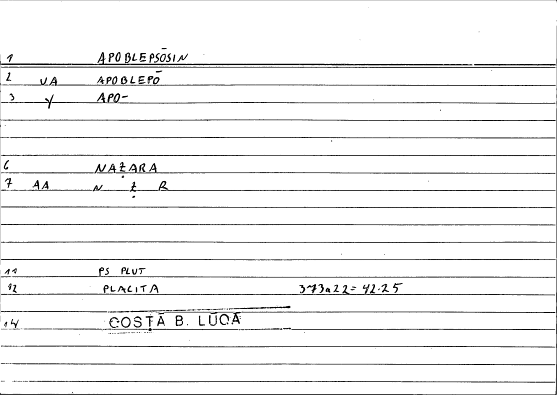 1 APOBLEPSŌSIN
2 VA APOBLEPŌ
3 Y APO-
6 NAẒARA
7 AA N Ẓ R
11 PS PLUT
12 PLACITA 373a22=42.25
14 COSTĀ B. LŪQĀ